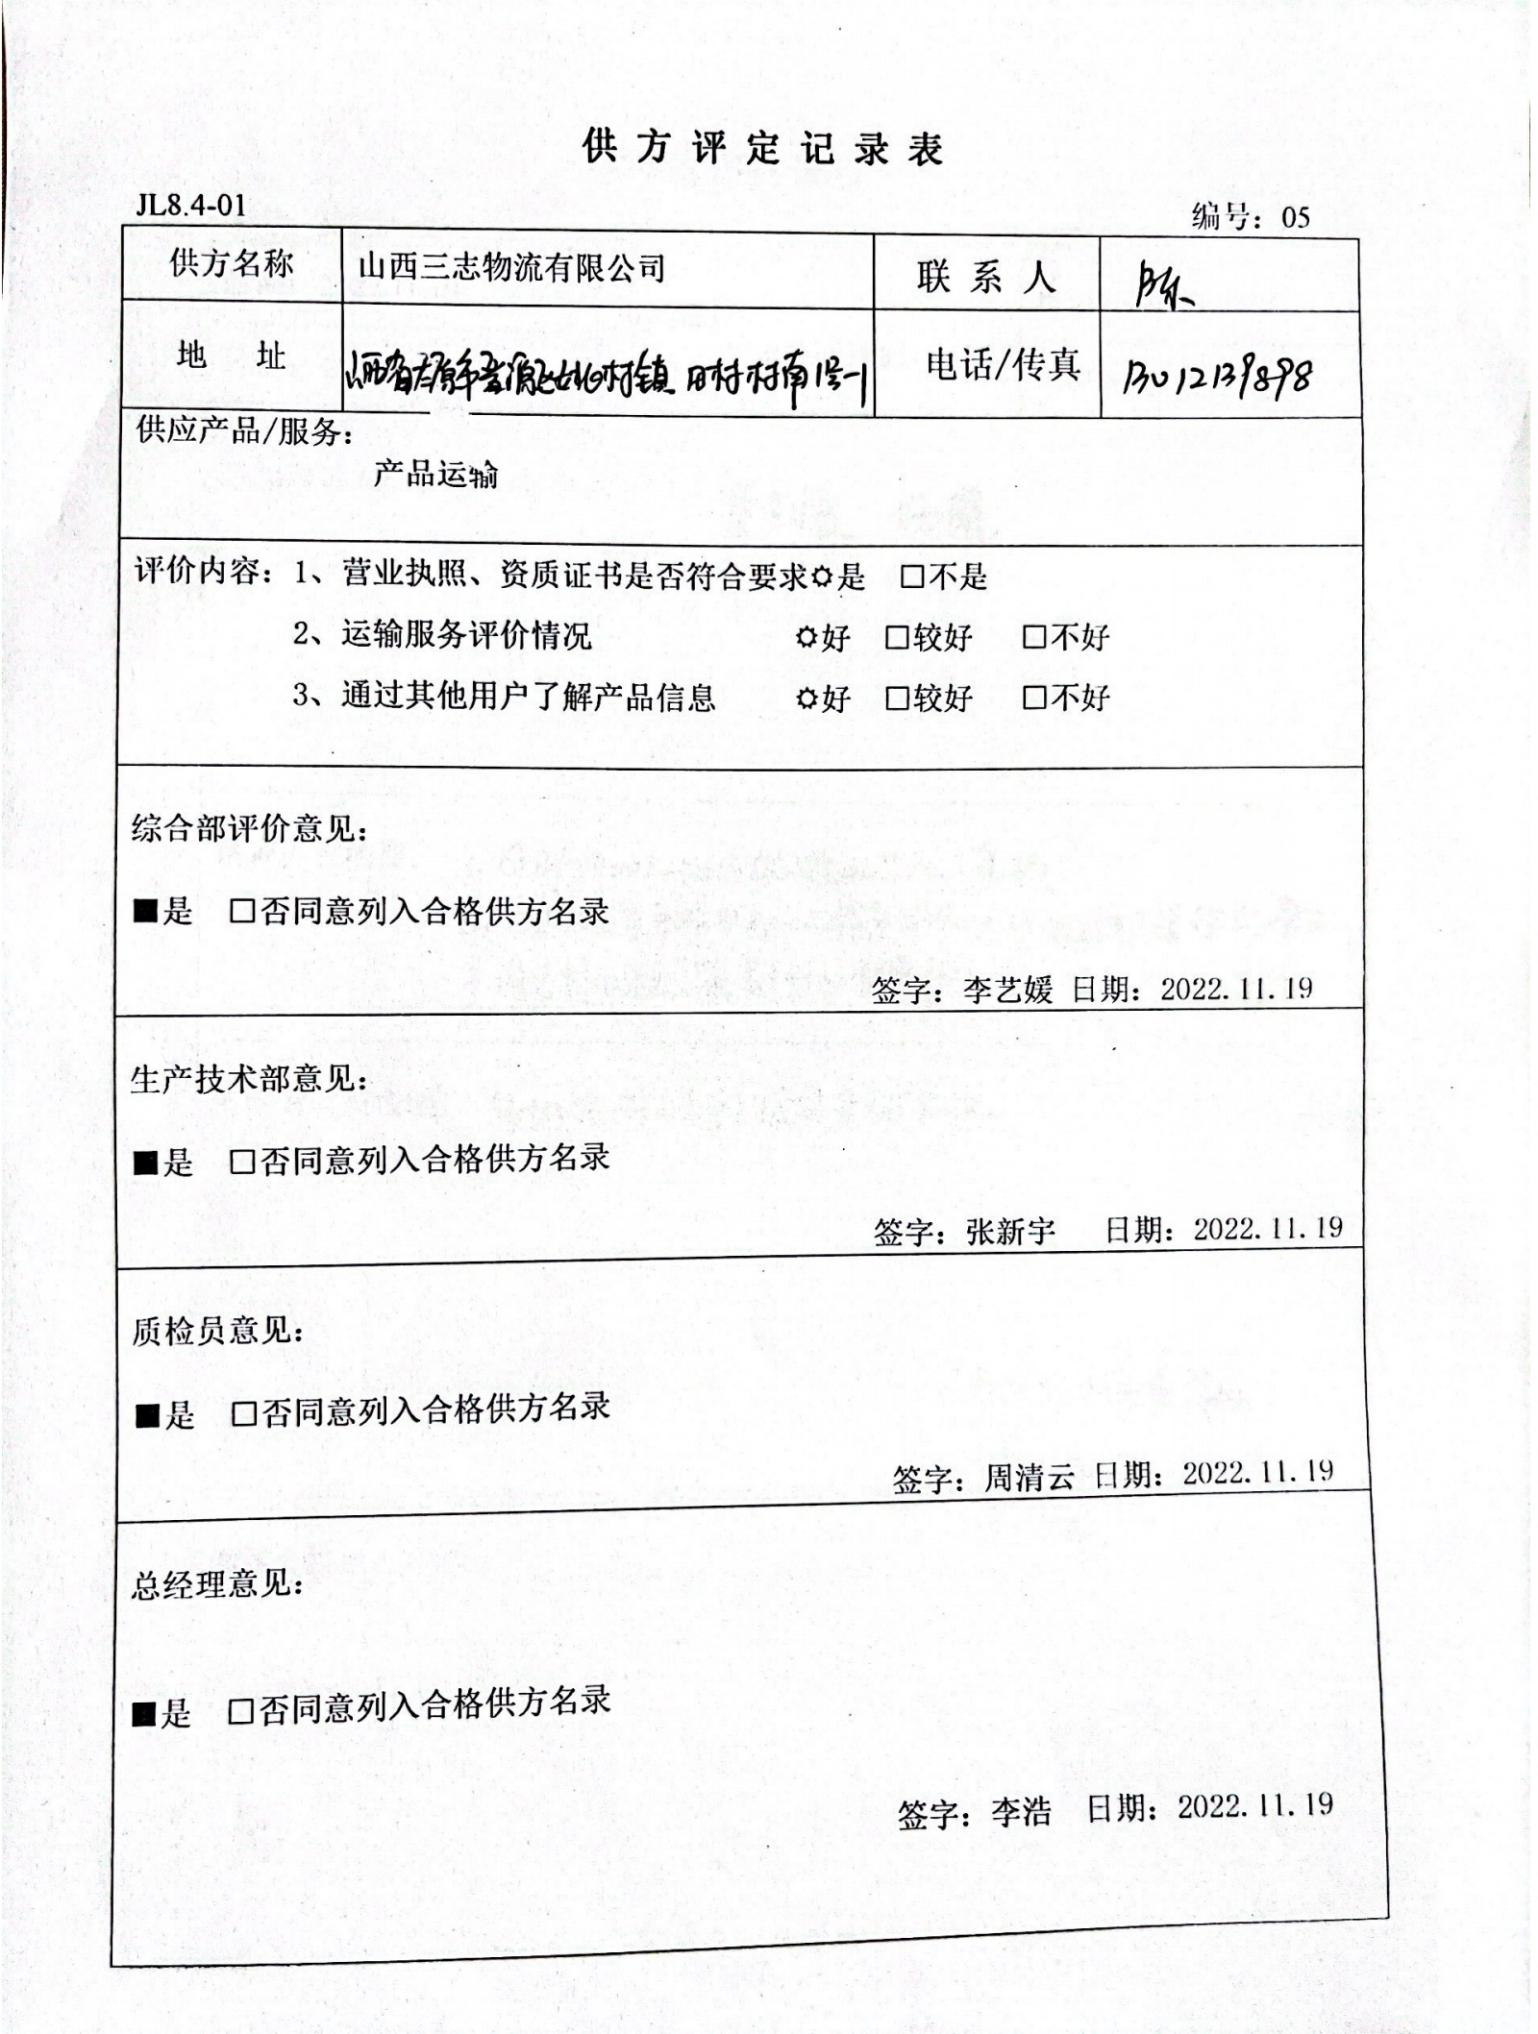 供方评定记录表
JL8.4-01
编号：05
供方名称 山西三志物流有限公司 联系人 陈
地址 山西省太原市晋源区姚村镇田村村南1号-1 电话/传真 13012139898
供应产品/服务：
产品运输
评价内容：1、营业执照、资质证书是否符合要求✡是 □不是
2、运输服务评价情况 ✡好 □较好 □不好
3、通过其他用户了解产品信息 ✡好 □较好 □不好
综合部评价意见：
■是 □否同意列入合格供方名录
签字：李艺媛 日期：2022.11.19
生产技术部意见：
■是 □否同意列入合格供方名录
签字：张新宇 日期：2022.11.19
质检员意见：
■是 □否同意列入合格供方名录
签字：周清云 日期：2022.11.19
总经理意见：
■是 □否同意列入合格供方名录
签字：李浩 日期：2022.11.19